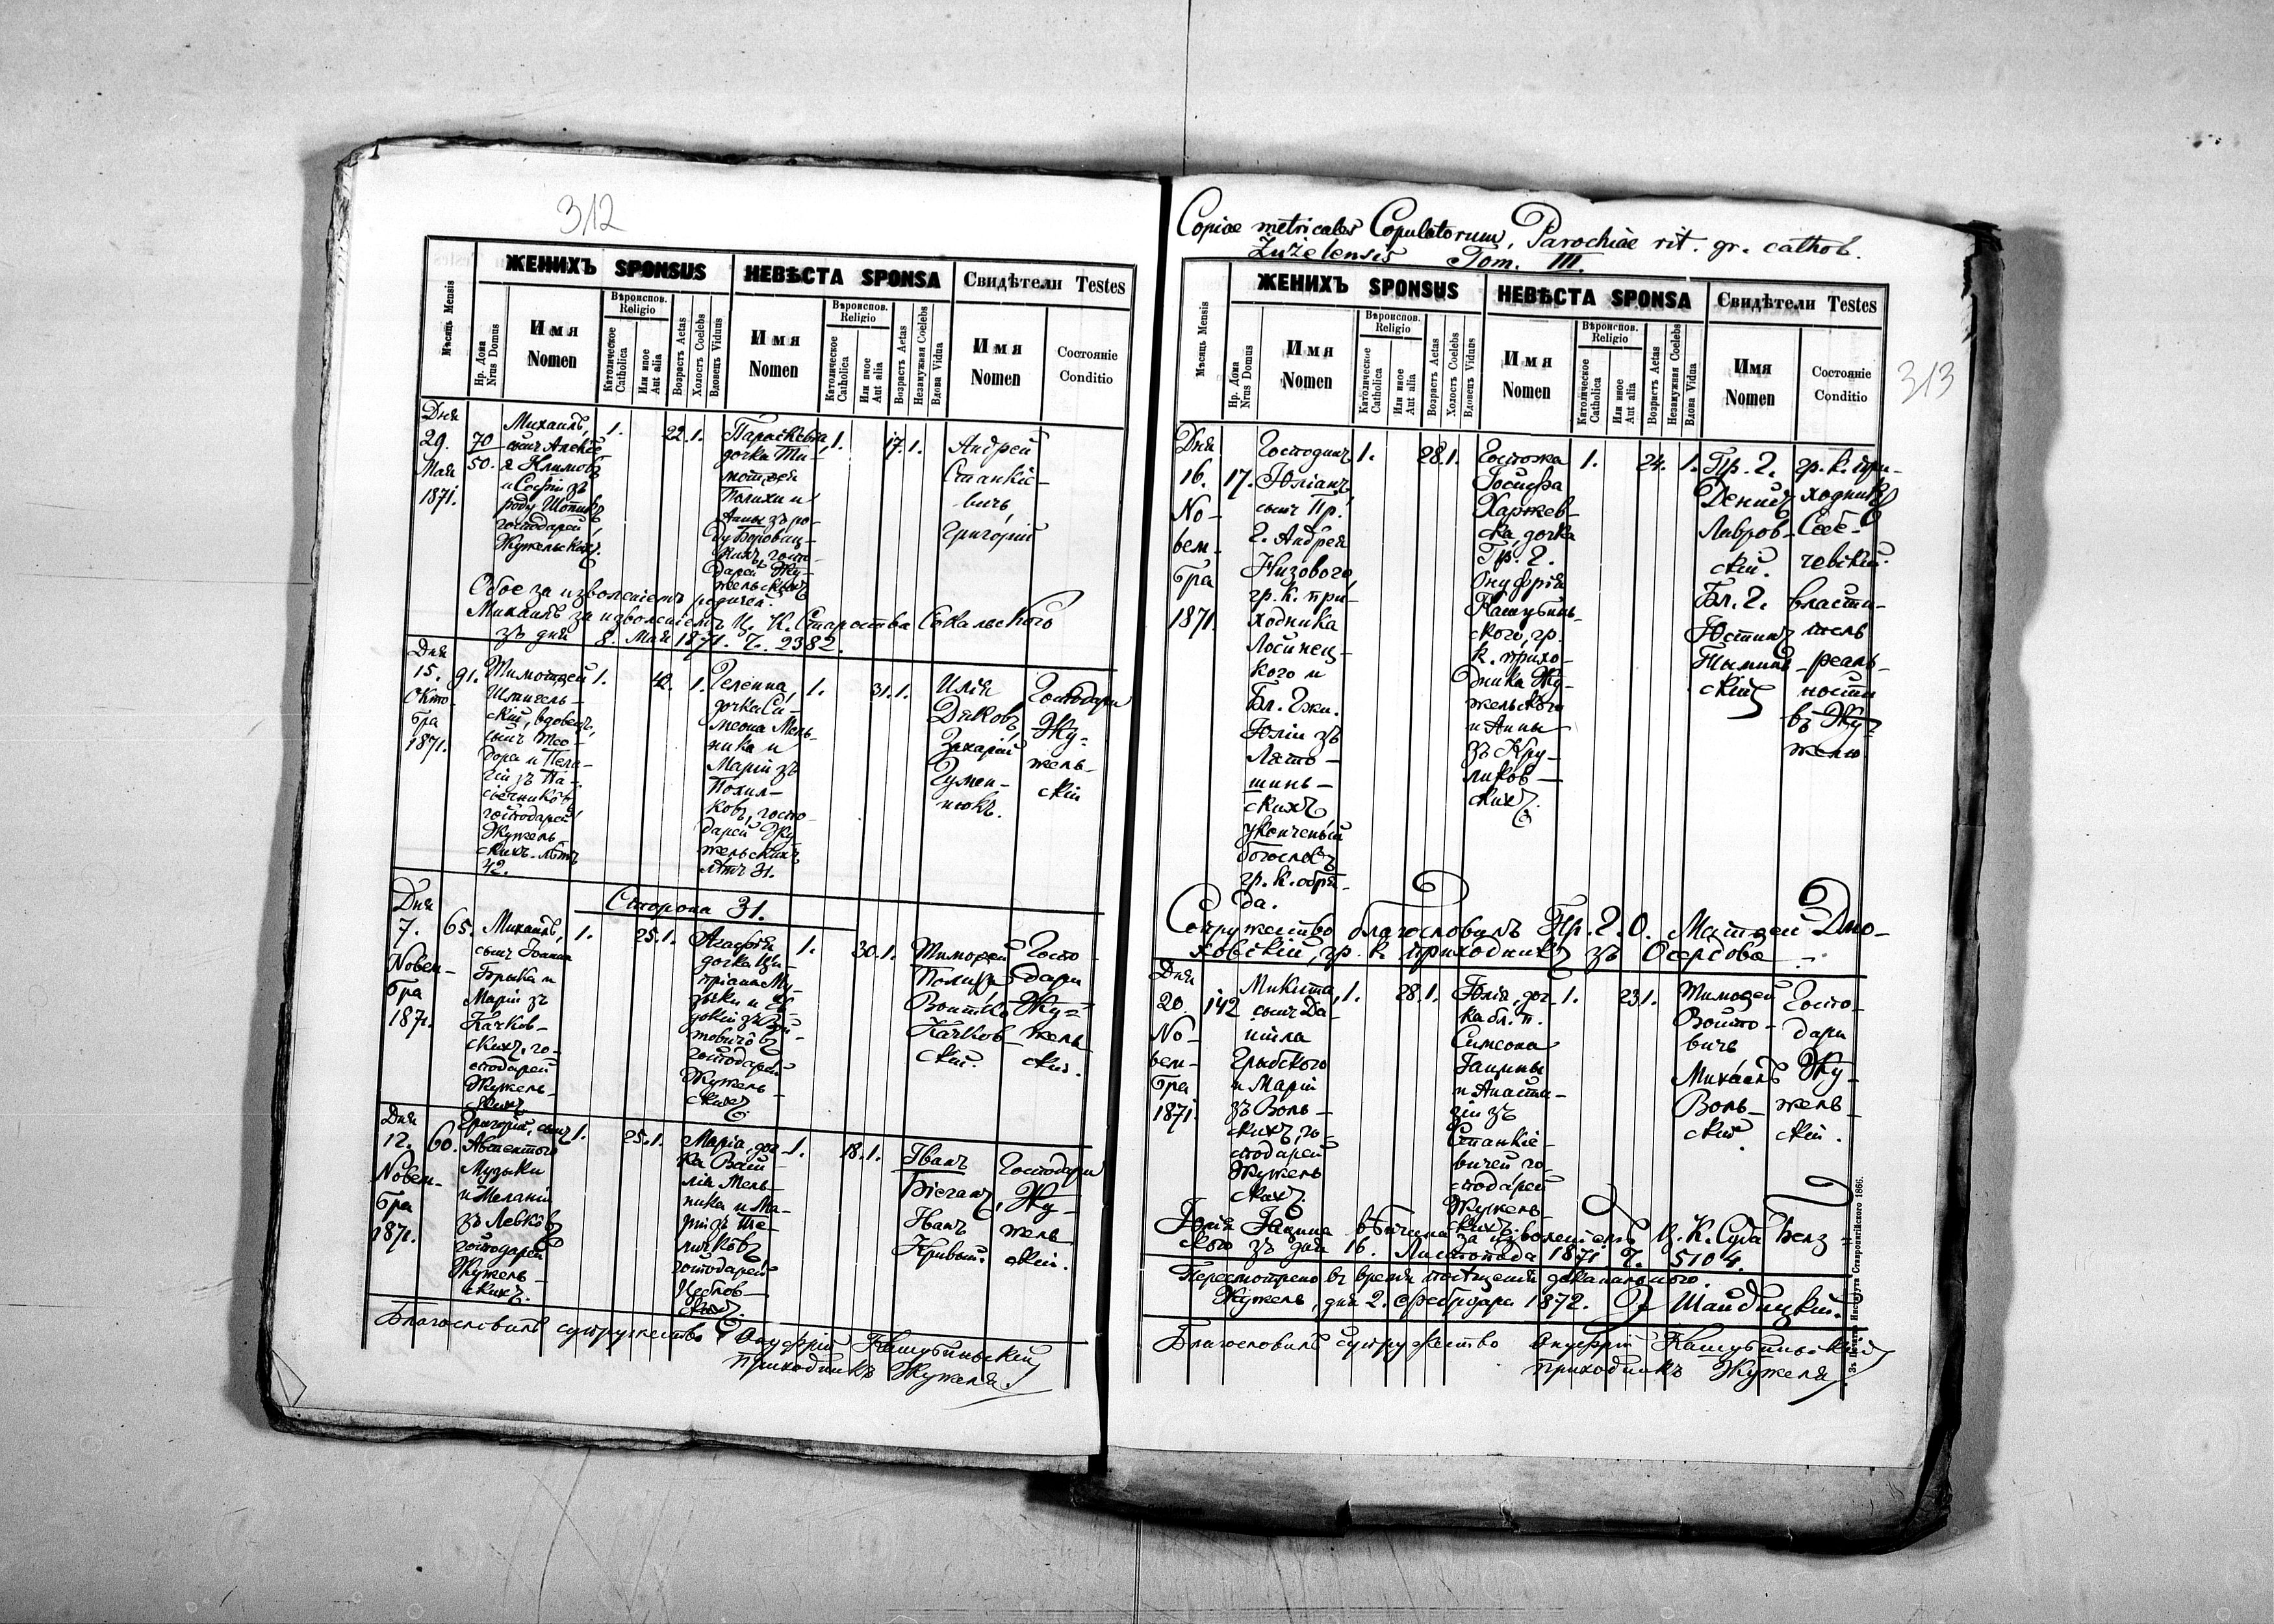 312
ЖЕНИХЪ SPONSUS
НЕВѢСТА SPONSA
Свидѣтели Testes
Мѣсяць Mensis
Нр. Дома
Nrus Domus
Имя
Nomen
Вѣроиспов.
Religio
Католическое
Catholica
Или иное
Aut alia
Возрастъ Aetas
Холостъ Coelebs
Вдовецъ Viduus
Имя
Nomen
Вѣроиспов.
Religio
Католическое
Catholica
Или иное
Aut alia
Возрастъ Aetas
Незамужная Coelebs
Вдова Vidua
Имя
Nomen
Состояніе
Conditio
Дня
29.
Мая
1871.
70
50.
Михаилъ,
сынъ Алексѣ
я Климовъ
и Софіи зъ
роду
господарей
Жужельскихъ.
1.
22.
1.
Параскевія,
дочка Ти-
мотея
Полихи и
Анны зъ ро-
ду Боровиц-
кихъ, госпо-
дарей Жу-
жельскихъ
1.
17.
1.
Андрей
Станкіе-
вичъ,
Григорій
Обое за изволеніемъ родичей.
Михаилъ за изволеніемъ Ц. К. Староства Сокальского
зъ дня 8. Мая 1871. Ч. 2382.
Дня
15.
Окто-
бра
1871.
91.
Тимотей
Штигель-
скій, вдовецъ,
сынъ Тео-
дора и Пела-
гіи зъ Па-
сѣчниковъ
господарей
Жужель-
скихъ лѣтъ
42.
1.
42.
1.
Гелена,
дочка Си-
меона Мель-
ника и
Маріи зъ
Полил-
ковъ, госпо-
дарей Жу
жельскихъ
лѣтъ 31.
1.
31.
1.
Илія
Дяковъ,
Захарій
Гумен-
нюкъ.
Господари
Жу-
жель-
скіи
Сторона 31.
Дня
7.
Новем-
бра
1871.
65.
Михаилъ,
сынъ Іоанна
Брыка и
Маріи зъ
Качков-
скихъ, го-
сподарей
Жужель-
скихъ
1.
25.
1.
Агафія
дочка Ки-
пріана Му-
зыки и Ев-
докіи зъ Вой-
товичовъ
господарей
Жужель-
скихъ
1.
30.
1.
Тимотей
Полиха
Войтко
Качков-
скій.
Госпо-
дари
Жу-
жель
скіи.
Дня
12.
Новем-
бра
1871.
60.
Григорій, сынъ
Авксентого
Музыки
и Меланіи
зъ Левковъ
господарей
Жужель-
скихъ.
1.
25.
1.
Марія, доч-
ка Васи-
лія Мель-
ника и Ма-
ріи зъ
господарей
скихъ.
1.
18.
1.
Іванъ
Бѣганъ,
Іванъ
Кривый.
Господари
Жу-
жель
скіи.
Благословилъ супружество Онуфрій Кашубиньскій
приходникъ Жужеля.
Copiae metricales Copulatorum, Parochiae rit. gr. cathol.
Żużelensis Tom. III.
313
ЖЕНИХЪ SPONSUS
НЕВѢСТА SPONSA
Свидѣтели Testes
Мѣсяць Mensis
Нр. Дома
Nrus Domus
Имя
Nomen
Вѣроиспов.
Religio
Католическое
Catholica
Или иное
Aut alia
Возрастъ Aetas
Холостъ Coelebs
Вдовецъ Viduus
Имя
Nomen
Вѣроиспов.
Religio
Католическое
Catholica
Или иное
Aut alia
Возрастъ Aetas
Незамужная Coelebs
Вдова Vidua
Имя
Nomen
Состояніе
Conditio
Дня
16.
No-
вем-
бра
1871.
17.
Господинъ
Юліанъ,
сынъ Пр.
Г. Андрея
Низового,
гр. к. при-
ходника
Лосинец-
кого и
Бл. Гжи.
Юліи зъ
Лято-
шинь-
скихъ,
укінченый
богословъ
гр. к. обря-
да.
1.
28.
1.
Госпожа
Іосифа
Харжев-
ска, дочка
Пр. Г.
Онуфрія
Кашубинь-
ского, гр.
к. прихо-
дника Жу-
жельского
и Анны
зъ Кру-
ликов-
скихъ.
1.
24.
1.
Пр. Г.
Денисъ
Лавров-
скій.
Бл. Г.
Юстинъ
Тыминь-
скій
гр. к. при-
ходникъ
Себе-
чевскій.
власти-
тель
реаль-
ности
въ Жу-
желю
Супружество благословилъ Пр. Г. О. Матей Дмо-
ховскій, гр. к. приходникъ зъ Осердова
Дня
20.
No-
вем-
бра
1871.
142
Микита,
сынъ Да-
ниила
Грыбского
и Маріи
зъ Воль-
скихъ, го-
сподарей
Жужель
скихъ.
1.
28.
1.
Юлія, доч-
ка бл. п.
Симеона
Гацины
и Анаста-
зіи зъ
Станкіе-
вичей го-
сподарей
Жужель-
скихъ
1.
23.
1.
Тимотей
Войто-
вичъ
Михаилъ
Воль-
скій.
Госпо-
дари
Жу-
жель-
скіи.
Юлія Гацина вѣнчана за изволеніемъ Ц. К. Суда Белз-
ского зъ дня 16. Листопада 1871 Ч. 5104.
Пересмотрено въ время посѣщенія деканального.
Жужель, дня 2. Фебруарія 1872. Шайдицкій.
Благословилъ супружество Онуфрій Кашубиньскій
приходникъ Жужеля.
Зъ Печатнѣ Института Ставропигійского 1866.